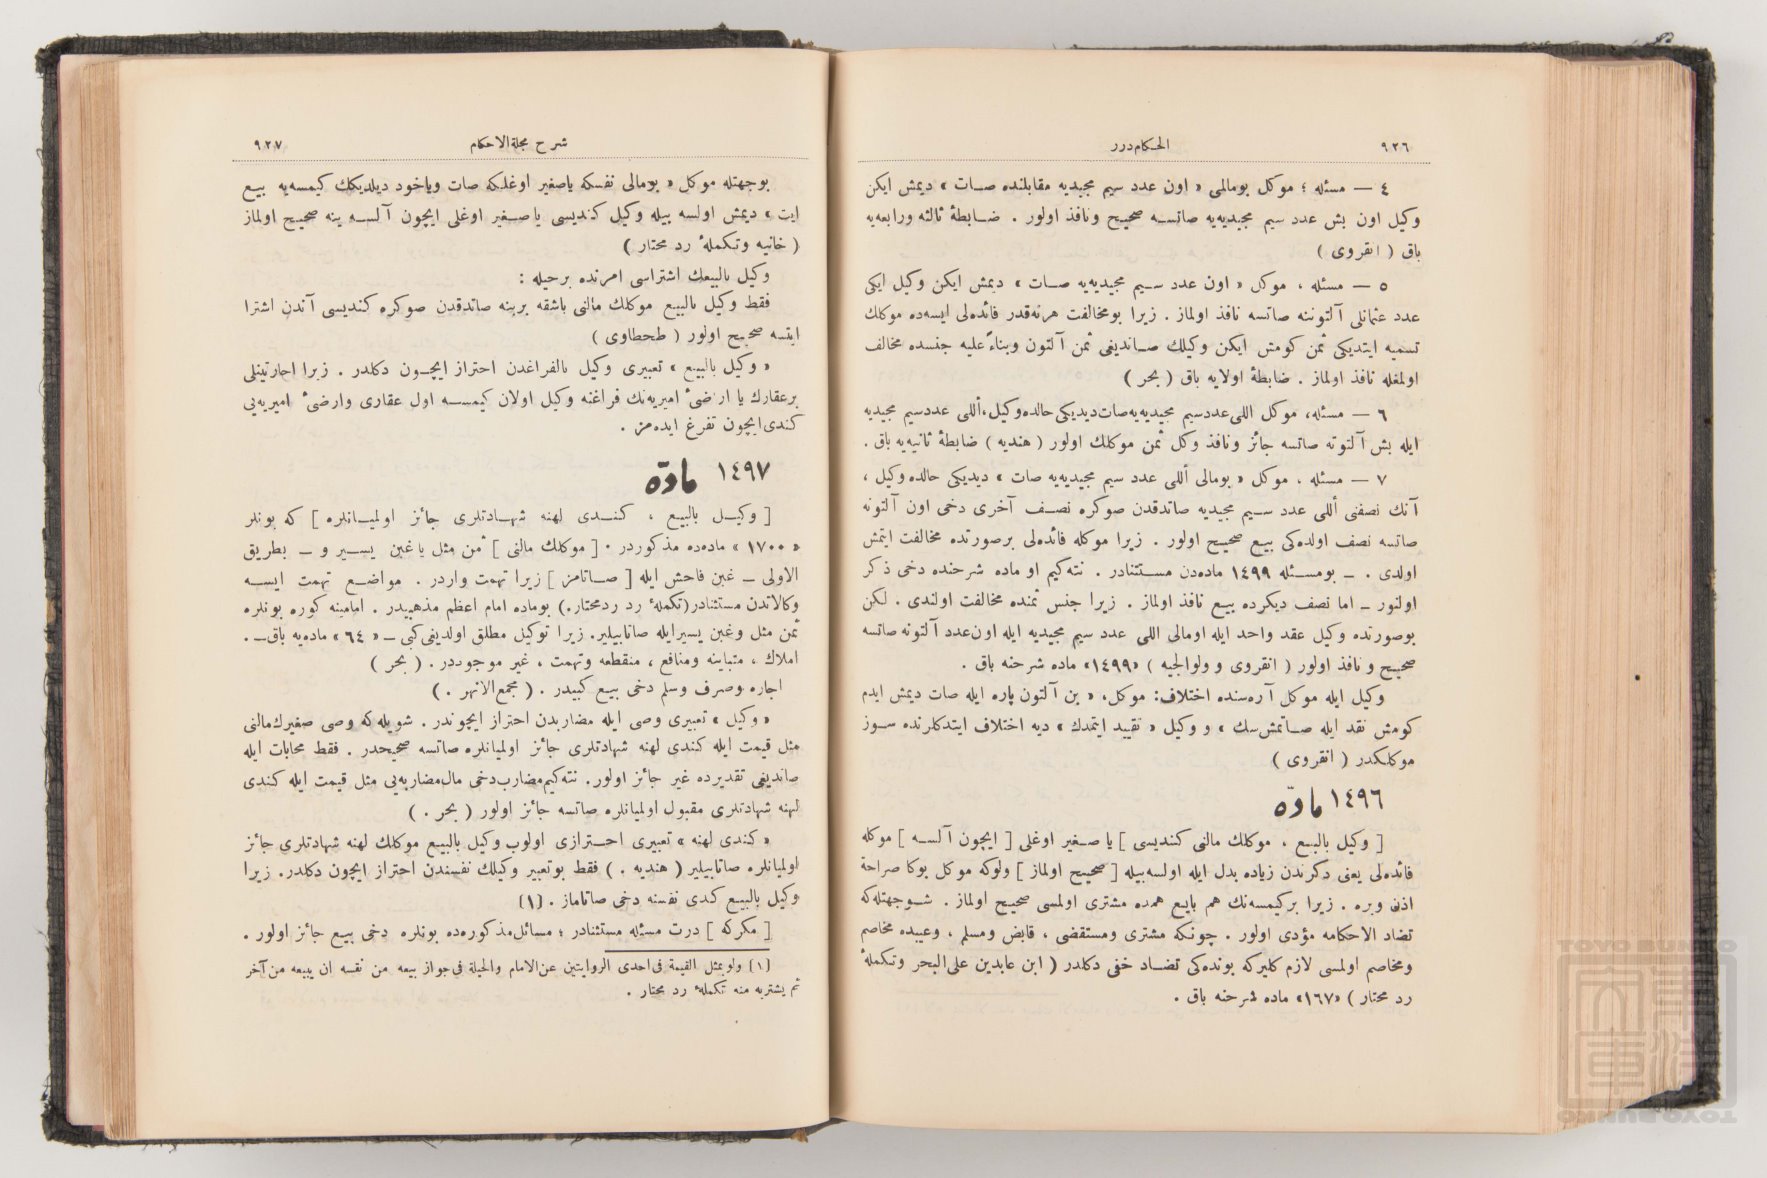 ٩٢٦
الحكام درر
٤ — مسئله ؛ موكل بومالمى « اون عدد سيم مجيديه مقابلنده صات » ديمش ايكن
وكيل اون بش عدد سيم مجيديه‌يه صاتسه صحيح ونافذ اولور . ضابطهٔ ثالثه ورابعه‌يه
باق ( انقروى )
٥ — مسئله ، موكل « اون عدد سيم مجيديه‌يه صات » ديمش ايكن وكيل ايكى
عدد عثمانلى آلتوننه صاتسه نافذ اولماز . زيرا بومخالفت هرنه‌قدر فائده‌لى ايسه‌ده موكلك
تسميه ايتديكى ثمن كومش ايكن وكيلك صاتديغى ثمن آلتون وبناءً عليه جنسده مخالف
اولمغله نافذ اولماز . ضابطهٔ اولايه باق ( بحر )
٦ — مسئله، موكل اللى عددسيم مجيديه‌يه صات ديديكى حالده وكيل، أللى عددسيم مجيديه
ايله بش آلتونه صاتسه جائز ونافذ وكل ثمن موكلك اولور ( هنديه ) ضابطهٔ ثانيه‌يه باق .
٧ — مسئله . موكل « بومالى أللى عدد سيم مجيديه‌يه صات » ديديكى حالده وكيل ،
آنك نصفنى أللى عدد سيم مجيديه صاتدقدن صوكره نصف آخرى دخى اون آلتونه
صاتسه نصف اولده‌كى بيع صحيح اولور . زيرا موكله فائده‌لى برصورتده مخالفت ايتمش
اولدى . ـ بومسئله ١٤٩٩ ماده‌دن مستثنادر . نته‌كيم او ماده شرحنده دخى ذكر
اولنور ـ اما نصف ديكرده بيع نافذ اولماز . زيرا جنس ثمنده مخالفت اولندى . لكن
بوصورتده وكيل عقد واحد ايله اومالى اللى عدد سيم مجيديه ايله اون‌عدد آلتونه صاتسه
صحيح و نافذ اولور ( انقروى و ولوالجيه ) «١٤٩٩» ماده شرحنه باق .
وكيل ايله موكل آره‌سنده اختلاف: موكل، « بن آلتون پاره ايله صات ديمش ايدم
كومش نقد ايله صاتمش‌سك » و وكيل « تقييد ايتمدك » ديه اختلاف ايتدكلرنده سوز
موكلكدر ( انقروى )
١٤٩٦ مادّه
[ وكيل بالبيع ، موكلك مالنى كنديسى ] يا صغير اوغلى [ ايچون آلسه ] موكله
فائده‌لى يعنى دكرندن زياده بدل ايله اولسه‌بيله [ صحيح اولماز ] ولوكه موكل بوكا صراحة
اذن ويره . زيرا بركيمسه‌نك هم بايع همده مشترى اولمسى صحيح اولماز . شوجهتله‌كه
تضاد الاحكامه مؤدى اولور . چونكه مشترى ومستقضى ، قابض ومسلم ، وعيبده مخاصم
ومخاصم اولمسى لازم كليركه بونده‌كى تضاد خفى دكلدر ( ابن عابدين على‌البحر وتكملهٔ
رد محتار ) «١٦٧» ماده شرحنه باق .
شرح مجلة الاحكام
٩٢٧
بوجهتله موكل « بومالى نفسكه ياصغير اوغلكه صات وياخود ديلديكك كيمسه‌يه بيع
ايت » ديمش اولسه بيله وكيل كنديسى يا صغير اوغلى ايچون آلسه ينه صحيح اولماز
( خانيه وتكملهٔ رد محتار )
وكيل بالبيعك اشتراسى امرنده برحيله :
فقط وكيل بالبيع موكلك مالنى باشقه برينه صاتدقدن صوكره كنديسى آندن اشترا
ايتسه صحيح اولور ( طحطاوى )
« وكيل بالبيع » تعبيرى وكيل بالفراغدن احتراز ايچون دكلدر . زيرا اجارتينلى
برعقارك يا اراضىٔ اميريه‌نك فراغنه وكيل اولان كيمسه اول عقارى واراضىٔ اميريه‌يى
كندى ايچون تفرغ ايده‌مز .
١٤٩٧ مادّه
[ وكيل بالبيع ، كندى لهنه شهادتلرى جائز اولميانلره ] كه بونلر
« ١٧٠٠ » ماده‌ده مذكوردر . [ موكلك مالنى ] ثمن مثل ياغبن يسير و ـ بطريق
الاولى ـ غبن فاحش ايله [ صاتامز ] زيرا تهمت واردر . مواضع تهمت ايسه
وكالاتدن مستثنادر(تكملهٔ رد ردمحتار.) بوماده امام اعظم مذهبيدر . امامينه كوره بونلره
ثمن مثل وغبن يسيرايله صاتابيلير. زيرا توكيل مطلق اولديغى‌كبى ـ « ٦٤ » ماده‌يه باق ـ .
املاك ، متباينه ومنافع ، منقطعه وتهمت ، غير موجوددر . ( بحر )
اجاره وصرف وسلم دخى بيع كبيدر . ( مجمع الانهر . )
« وكيل » تعبيرى وصى ايله مضاربدن احتراز ايچوندر . شويله‌كه وصى صغيرك‌مالنى
مثل قيمت ايله كندى لهنه شهادتلرى جائز اولميانلره صاتسه صحيحدر . فقط محابات ايله
صاتديغى تقديرده غير جائز اولور. نته‌كيم‌مضارب‌دخى مال‌مضاربه‌يى مثل قيمت ايله كندى
لهنه شهادتلرى مقبول اولميانلره صاتسه جائز اولور ( بحر . )
« كندى لهنه » تعبيرى احترازى اولوب وكيل بالبيع موكلك لهنه شهادتلرى جائز
اولميانلره صاتابيلير ( هنديه . ) فقط بوتعبير وكيلك نفسندن احتراز ايچون دكلدر. زيرا
وكيل بالبيع كندى نفسنه دخى صاتاماز . [١]
[ مكركه ] درت مسئله مستثنادر ؛ مسائل‌مذكوره‌ده بونلره دخى بيع جائز اولور .
[١] ولو بمثل القيمة فى احدى الروايتين عن‌الامام والحيلة فى‌جواز بيعه من نفسه ان يبيعه من‌آخر
ثم يشتريه منه تكملهٔ رد محتار .